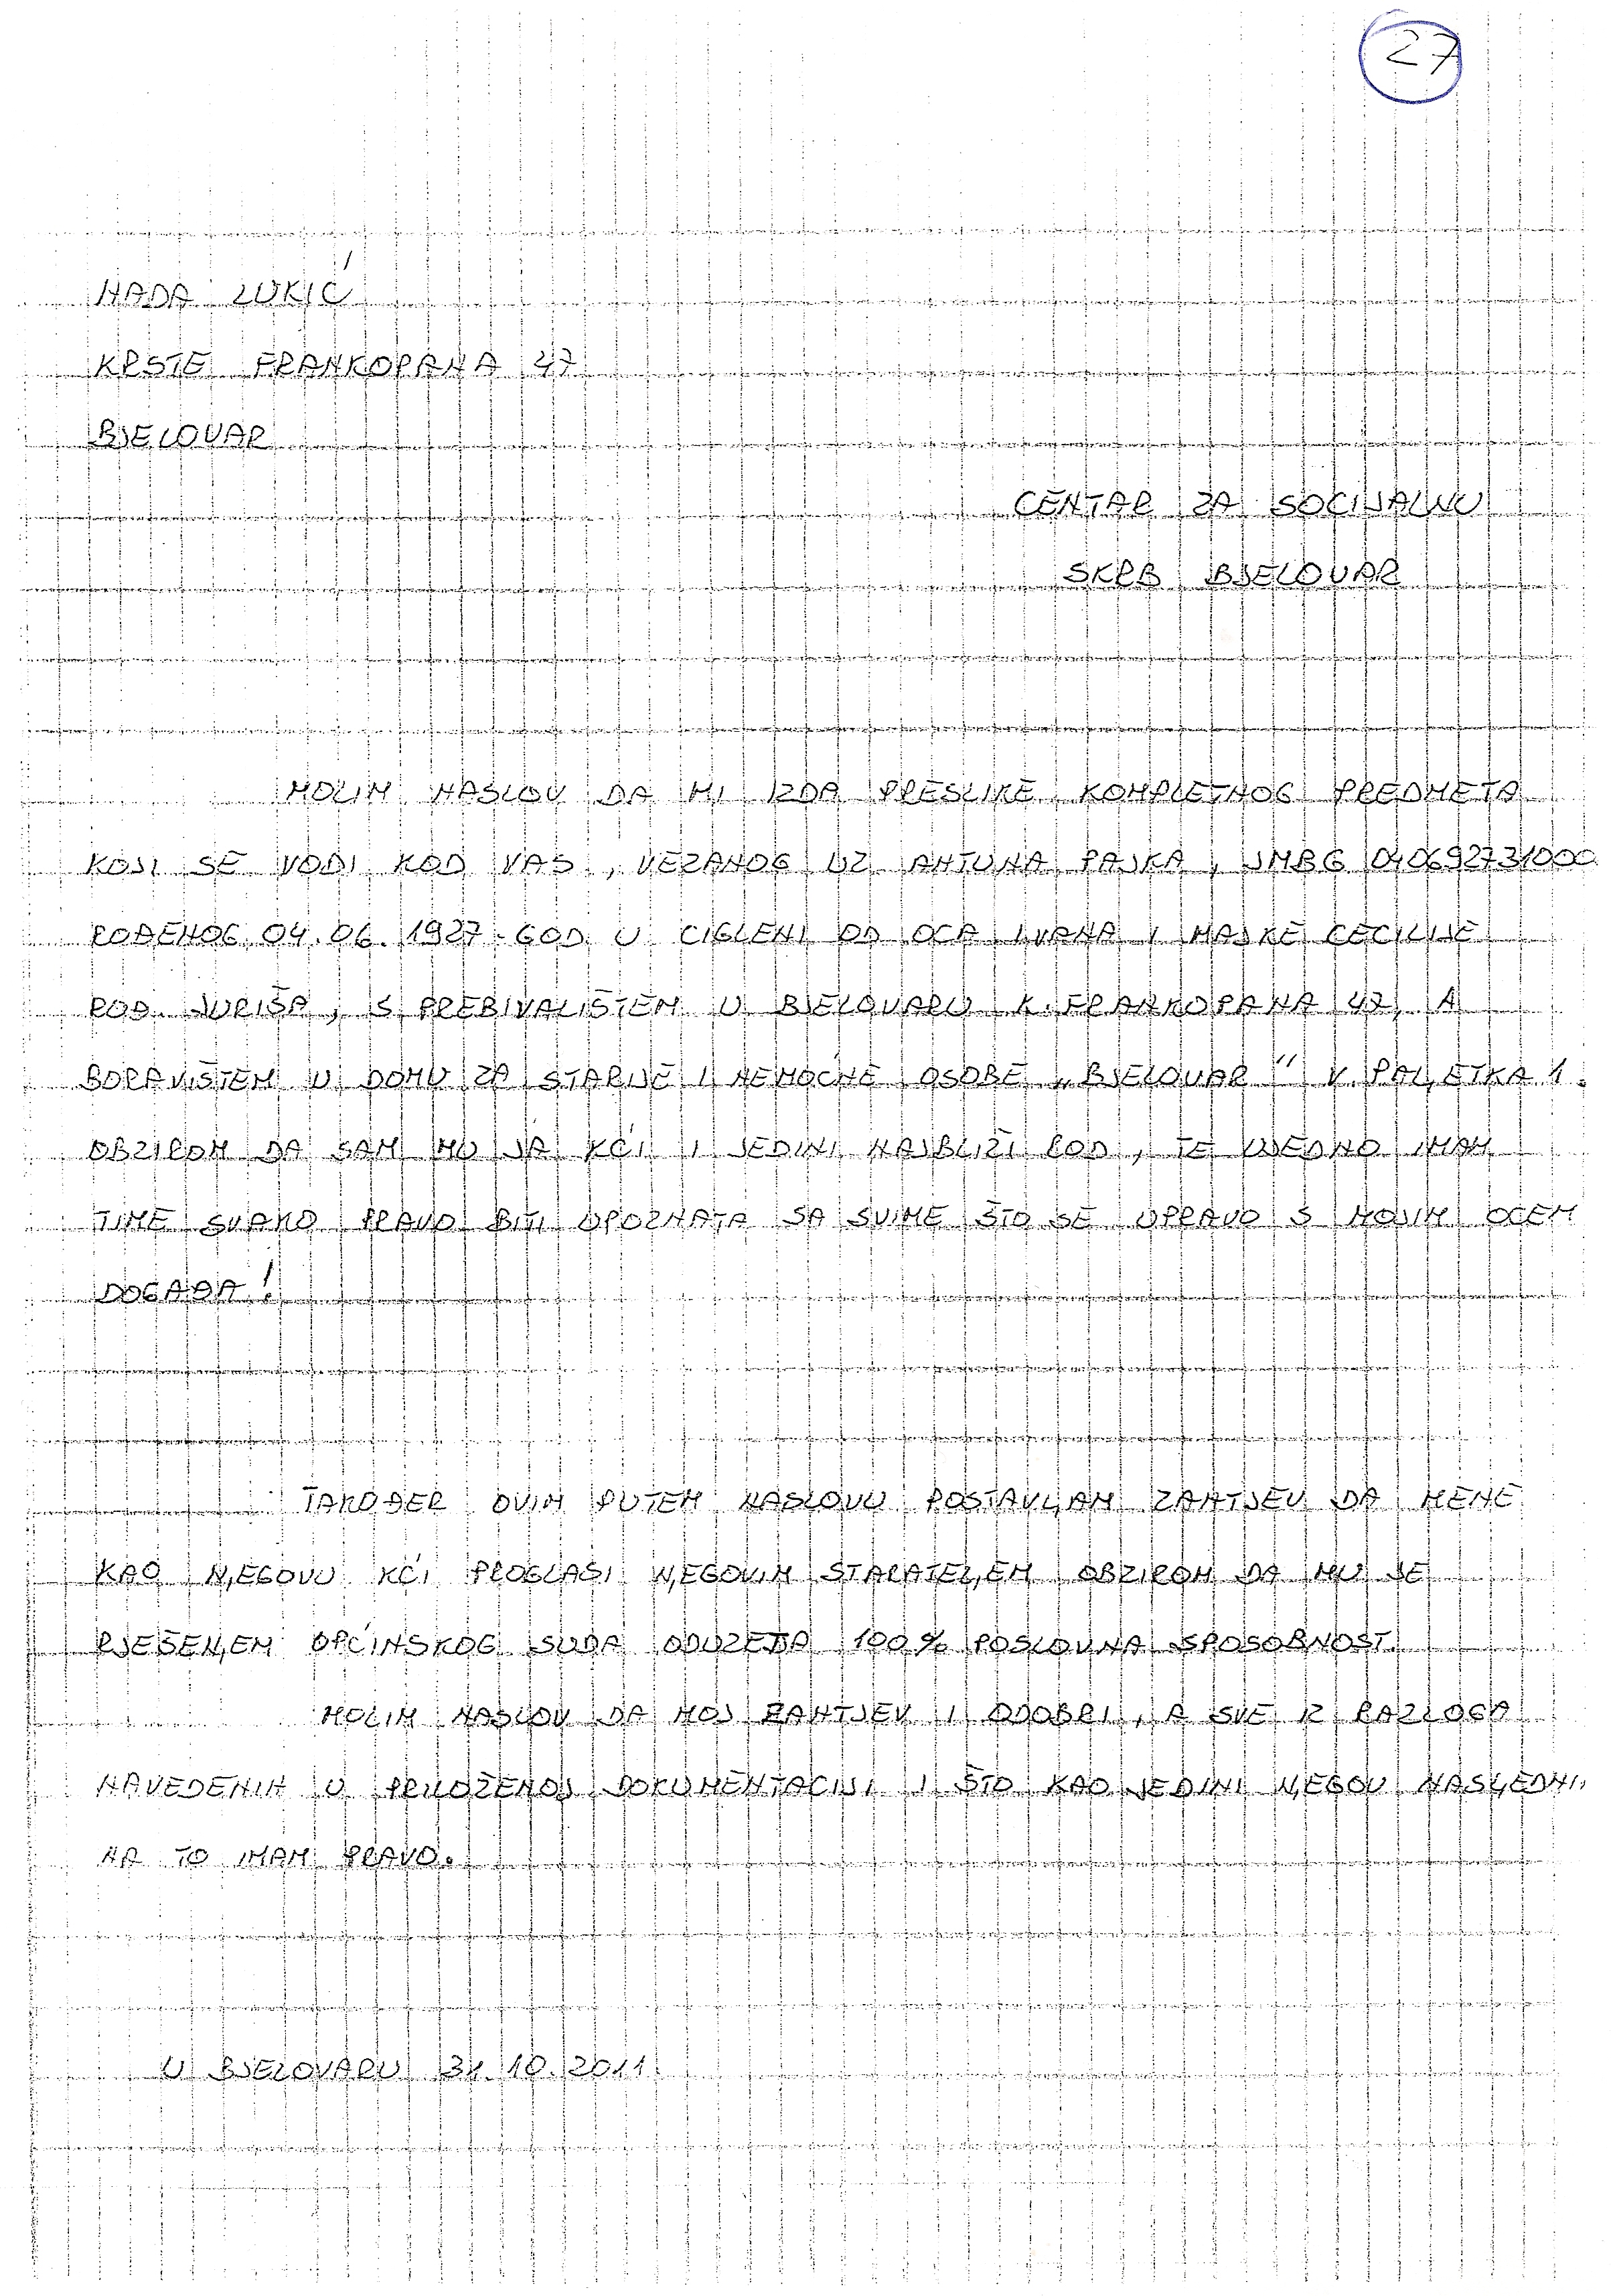 27
NADA LUKIĆ
KRSTE FRANKOPANA 47
BJELOVAR
CENTAR ZA SOCIJALNU
SKRB BJELOVAR
MOLIM NASLOV DA MI IZDA PRESLIKE KOMPLETNOG PREDMETA
KOJI SE VODI KOD VAS, VEZANOG UZ ANTUNA PAJKA, JMBG 040692731000
ROĐENOG 04.06.1927. GOD U CIGLENI OD OCA IVANA I MAJKE CECILIJE
ROĐ. JURIŠA, S PREBIVALIŠTEM U BJELOVARU K. FRANKOPANA 47, A
BORAVIŠTEM U DOMU ZA STARIJE I NEMOĆNE OSOBE „BJELOVAR" V. PALJETKA 1.
OBZIROM DA SAM MU JA KĆI I JEDINI NAJBLIŽI ROD, TE UJEDNO IMAM
TIME SVAKO PRAVO BITI UPOZNATA SA SVIME ŠTO SE UPRAVO S MOJIM OCEM
DOGAĐA!
TAKOĐER OVIM PUTEM NASLOVU POSTAVLJAM ZAHTJEV DA MENE
KAO NJEGOVU KĆI PROGLASI NJEGOVIM STARATELJEM OBZIROM DA MU JE
RJEŠENJEM OPĆINSKOG SUDA ODUZETA 100% POSLOVNA SPOSOBNOST.
MOLIM NASLOV DA MOJ ZAHTJEV I ODOBRI, A SVE IZ RAZLOGA
NAVEDENIH U PRILOŽENOJ DOKUMENTACIJI I ŠTO KAO JEDINI NJEGOV
NA TO IMAM PRAVO.
U BJELOVARU 31.10.2011.